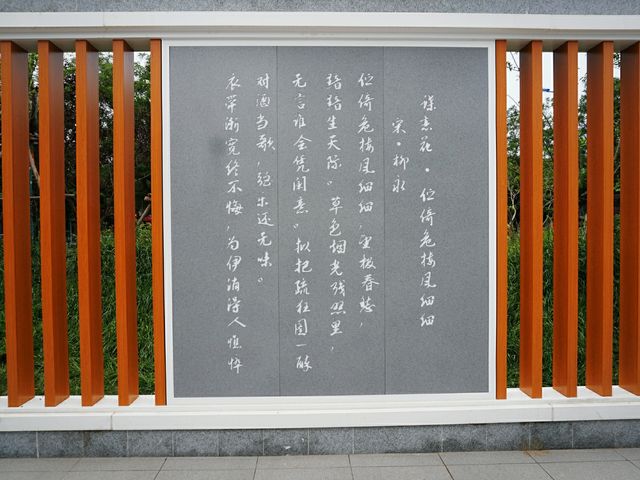 蝶恋花·伫倚危楼风细细
宋·柳永
伫倚危楼风细细，望极春愁，
黯黯生天际。草色烟光残照里，
无言谁会凭阑意。拟把疏狂图一醉
对酒当歌，强乐还无味。
衣带渐宽终不悔，为伊消得人憔悴